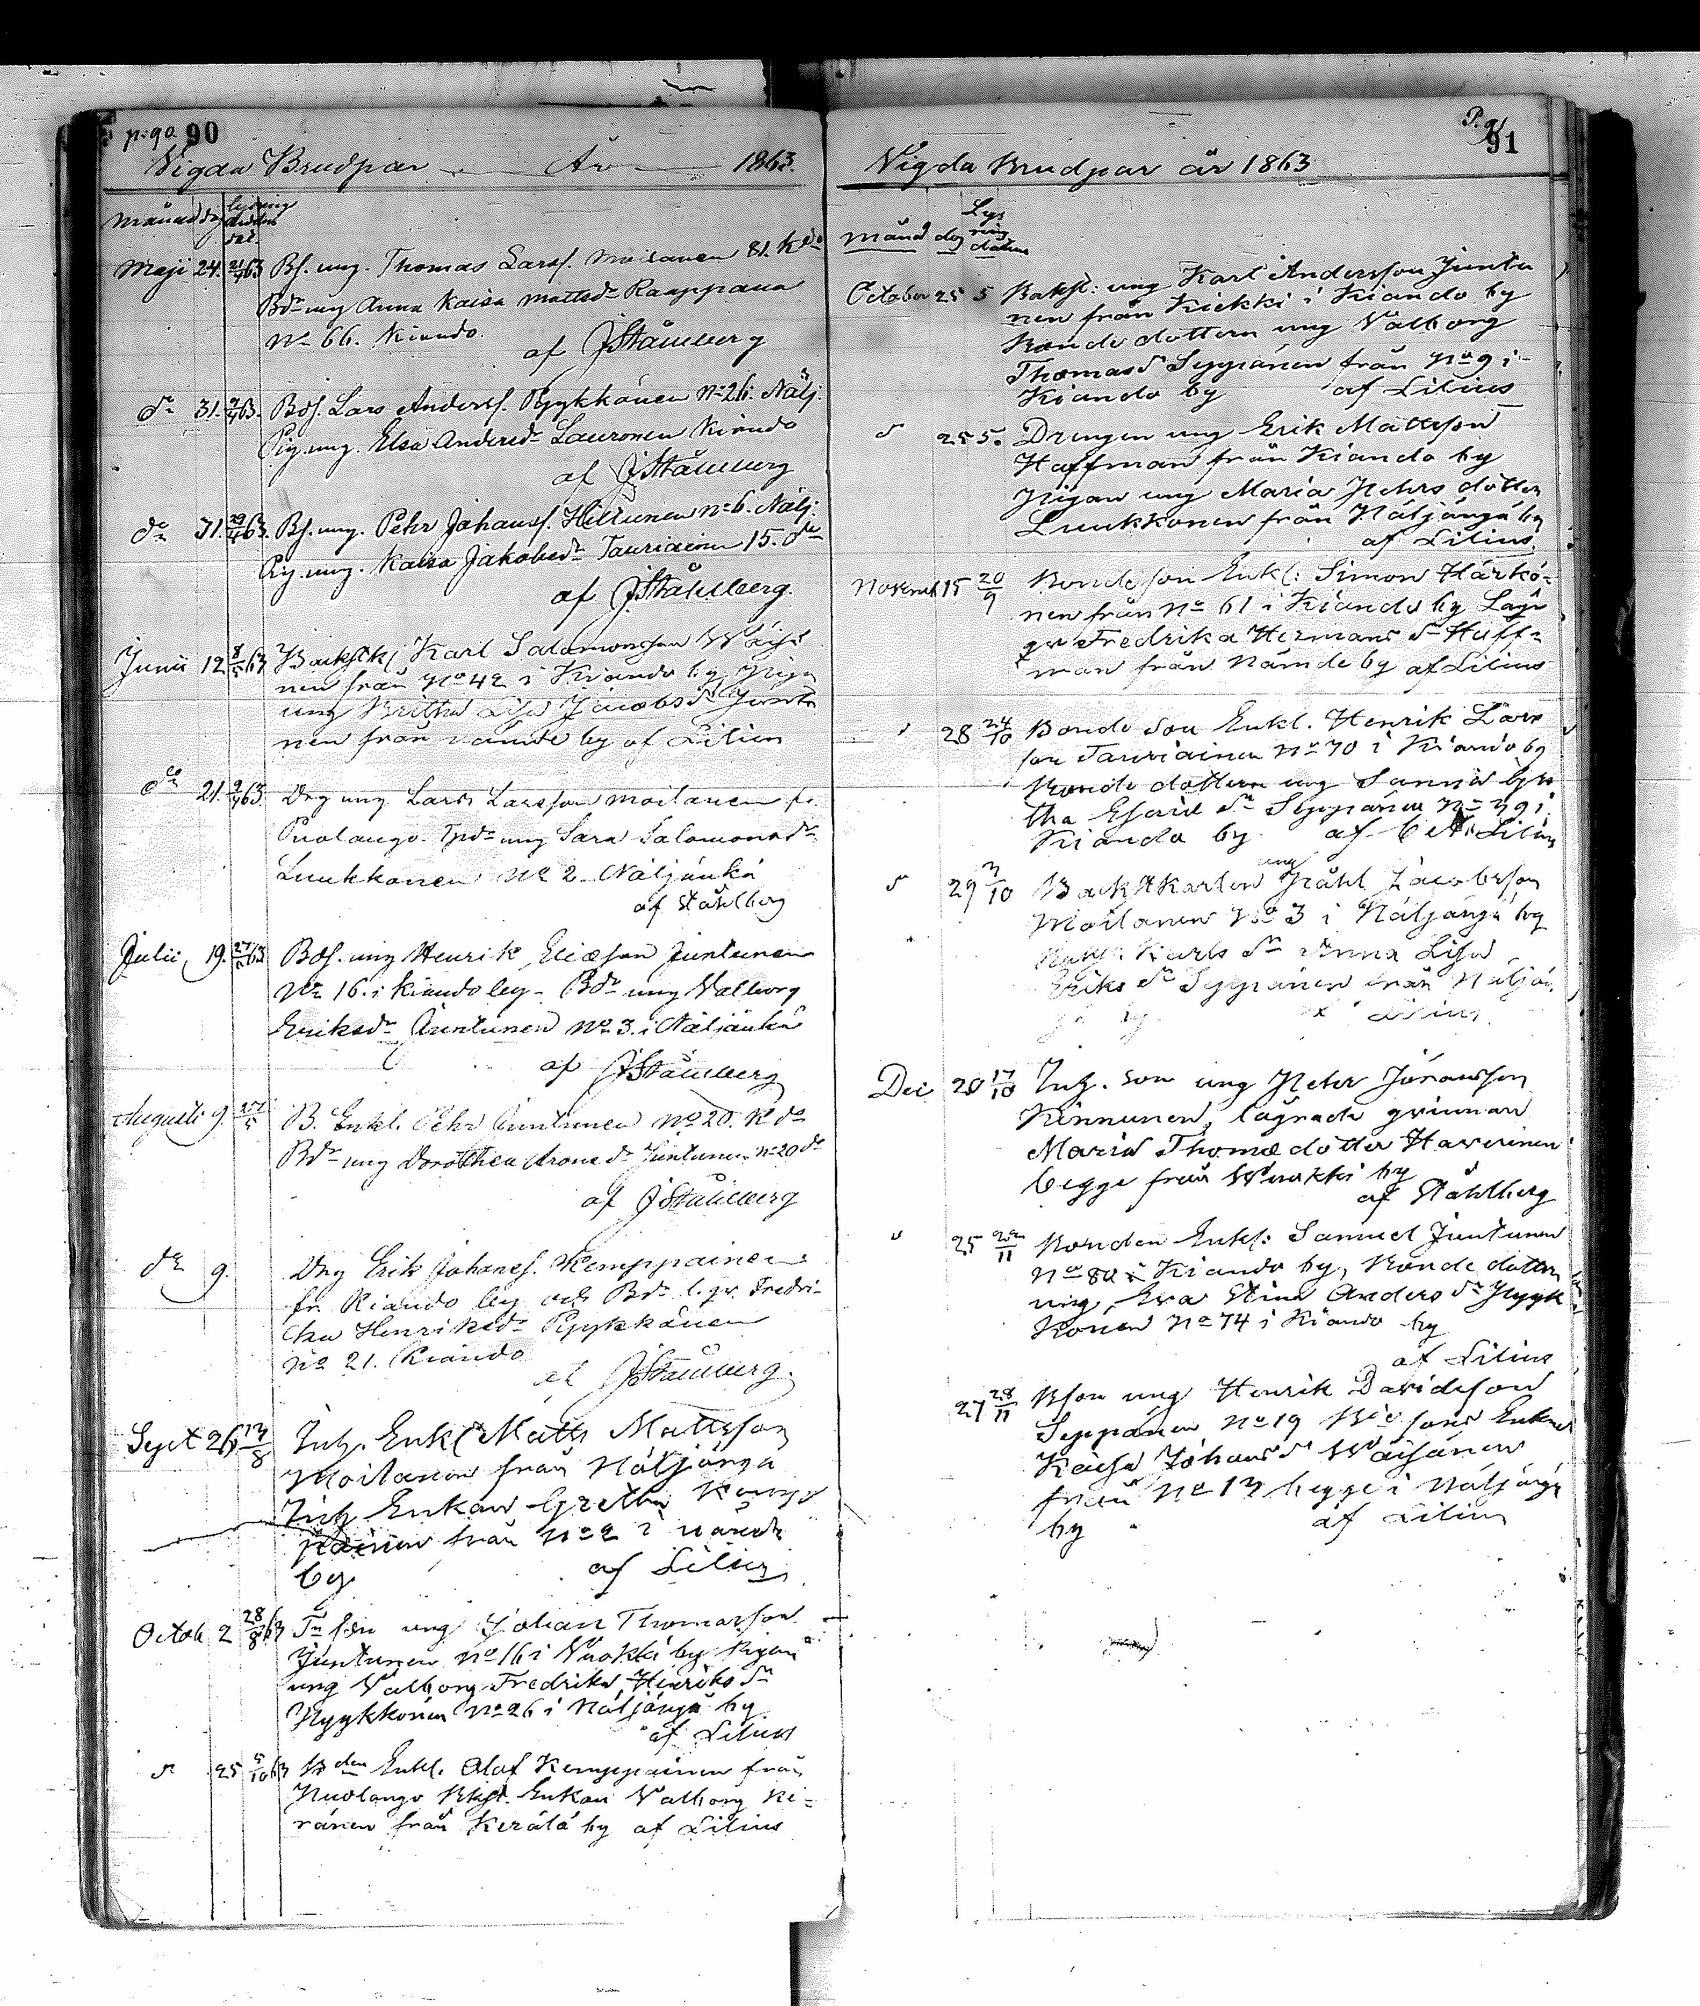 p. 90 90
Vigda Brudpar År 1863.
Månad dag lysning
Maji 24. 63 Bs. ung. Thomas Larss. Moisanen 81. K do
Bdr ung Anna Kaisa Mattsdr Raappana
No 66. Kiando.
af J Ståhlberg
do 31. 63. Bds. Lars Anderss. Pyykkönen No 26. Nälj.
Pig. ung. Elsa Andersdr Lauronen Kiando
af J Ståhlberg
do 31. 63. Bs. ung. Pehr Johanss. Heikkinen No 6. Nälj:
Pig. ung. Kaisa Jakobsdr Tauriainen 15. do
af J Ståhlberg.
Junii 12 8/5 63 Karl Salomonsson Wäisä
nen från No 42 i Kiando by Piga
ung Britha Lisa Jacobs dr Junttu
nen från by af Lilius
do 21. 63. Drg ung Lars Larsson Moilanen fr.
Puolango. ung Sara Salomonsdr
Luukkonen No 2 Näljänkä
af Ståhlberg
Julii 19. 63 Bds. ung Henrik Eliasson Juntunen
No 16. i Kiando by - Bdr ung Walborg
Eriksdr Juntunen No 3. i Näljänkä
af J Ståhlberg
Augusti 9. B. Enkl. Pehr Juntunen No 20. K do
Bdr ung Dorothea Aronsdr Juntunen No 20 do
af J Ståhlberg
do 9. Drg Erik Johanss. Kemppainen
fr. Kiando by och Bdr l. qv. Fredri-
cka Henriksdr Pyykkönen
No 21. Kiando
af J Ståhlberg.
Sept 26 17/8 Inh. Enkl Matts Mattsson
Moilanen från Näljänga
Inh Enkan Gretha Kemp
painen från No 2 i
by af Lilius
Octob 2 28/8 63 son ung Johan Thomasson
Juntunen No 16 i Vuokki by Pigan
ung Valborg Fredrika Henriks dr
Pyykkönen No 26 i Näljänga by
af Lilius
dr 25 5/10 63 Bden Enkl. Olof Kemppainen från
Puolango Enkan Valborg Ki-
ränen från Kerälä by af Lilius
P. 91 91
Vigda Brudpar år 1863
Månd dag Lys
ning
datum
October 25 5 ung Karl Andersson Juntu
nen från Kiekki i Kiando by
Bonde dottern ung Valborg
Thomas dr Seppänen från No 9 i
Kiando by af Lilius
dr 25 5. Drengen ung Erik Mattsson
Haffman från Kiando by
Pigan ung Maria Pehrs dotter
Luukkonen från Näljänga by
af Lilius
Novemb 15 20/9 Bondeson Enkl: Simon Härkö-
nen från No 61 i Kiando by
qv Fredrika Hermans dr Huff-
man från Nämde by af Lilius
28 24/10 Bonde son Enkl. Henrik Lars
son Tauriainen No 70 i Kiando by
Bonde dottern ung
tha dr Seppänen No 39 i
Kiando by af Lilius
dr 29 7/10 ung Påhl Jacobsson
Moilanen No 3 i Näljänga by
Karls dr Anna Lisa
Eriks dr Seppänen från Näljän
Lilius
Dec 20 17/10 Inh. son ung Pehr Göransson
Kinnunen, lägrade qvinnan
Maria Thomæ dotter Haverinen
begge från Wuokki by
af Ståhlberg
25 22/11 Bonden Enkl: Samuel Juntunen
No 80 i Kiando by, Bonde dottern
ung, Eva Stina Anders dr Pyyk
könen No 74 i Kiando by
af Lilius
27 28/11 Bson ung Henrik Davidsson
Seppänen No 19 sons Enkan
Kaisa Johans dr Wäisänen
från No 17 begge i Näljänga
by af Lilius